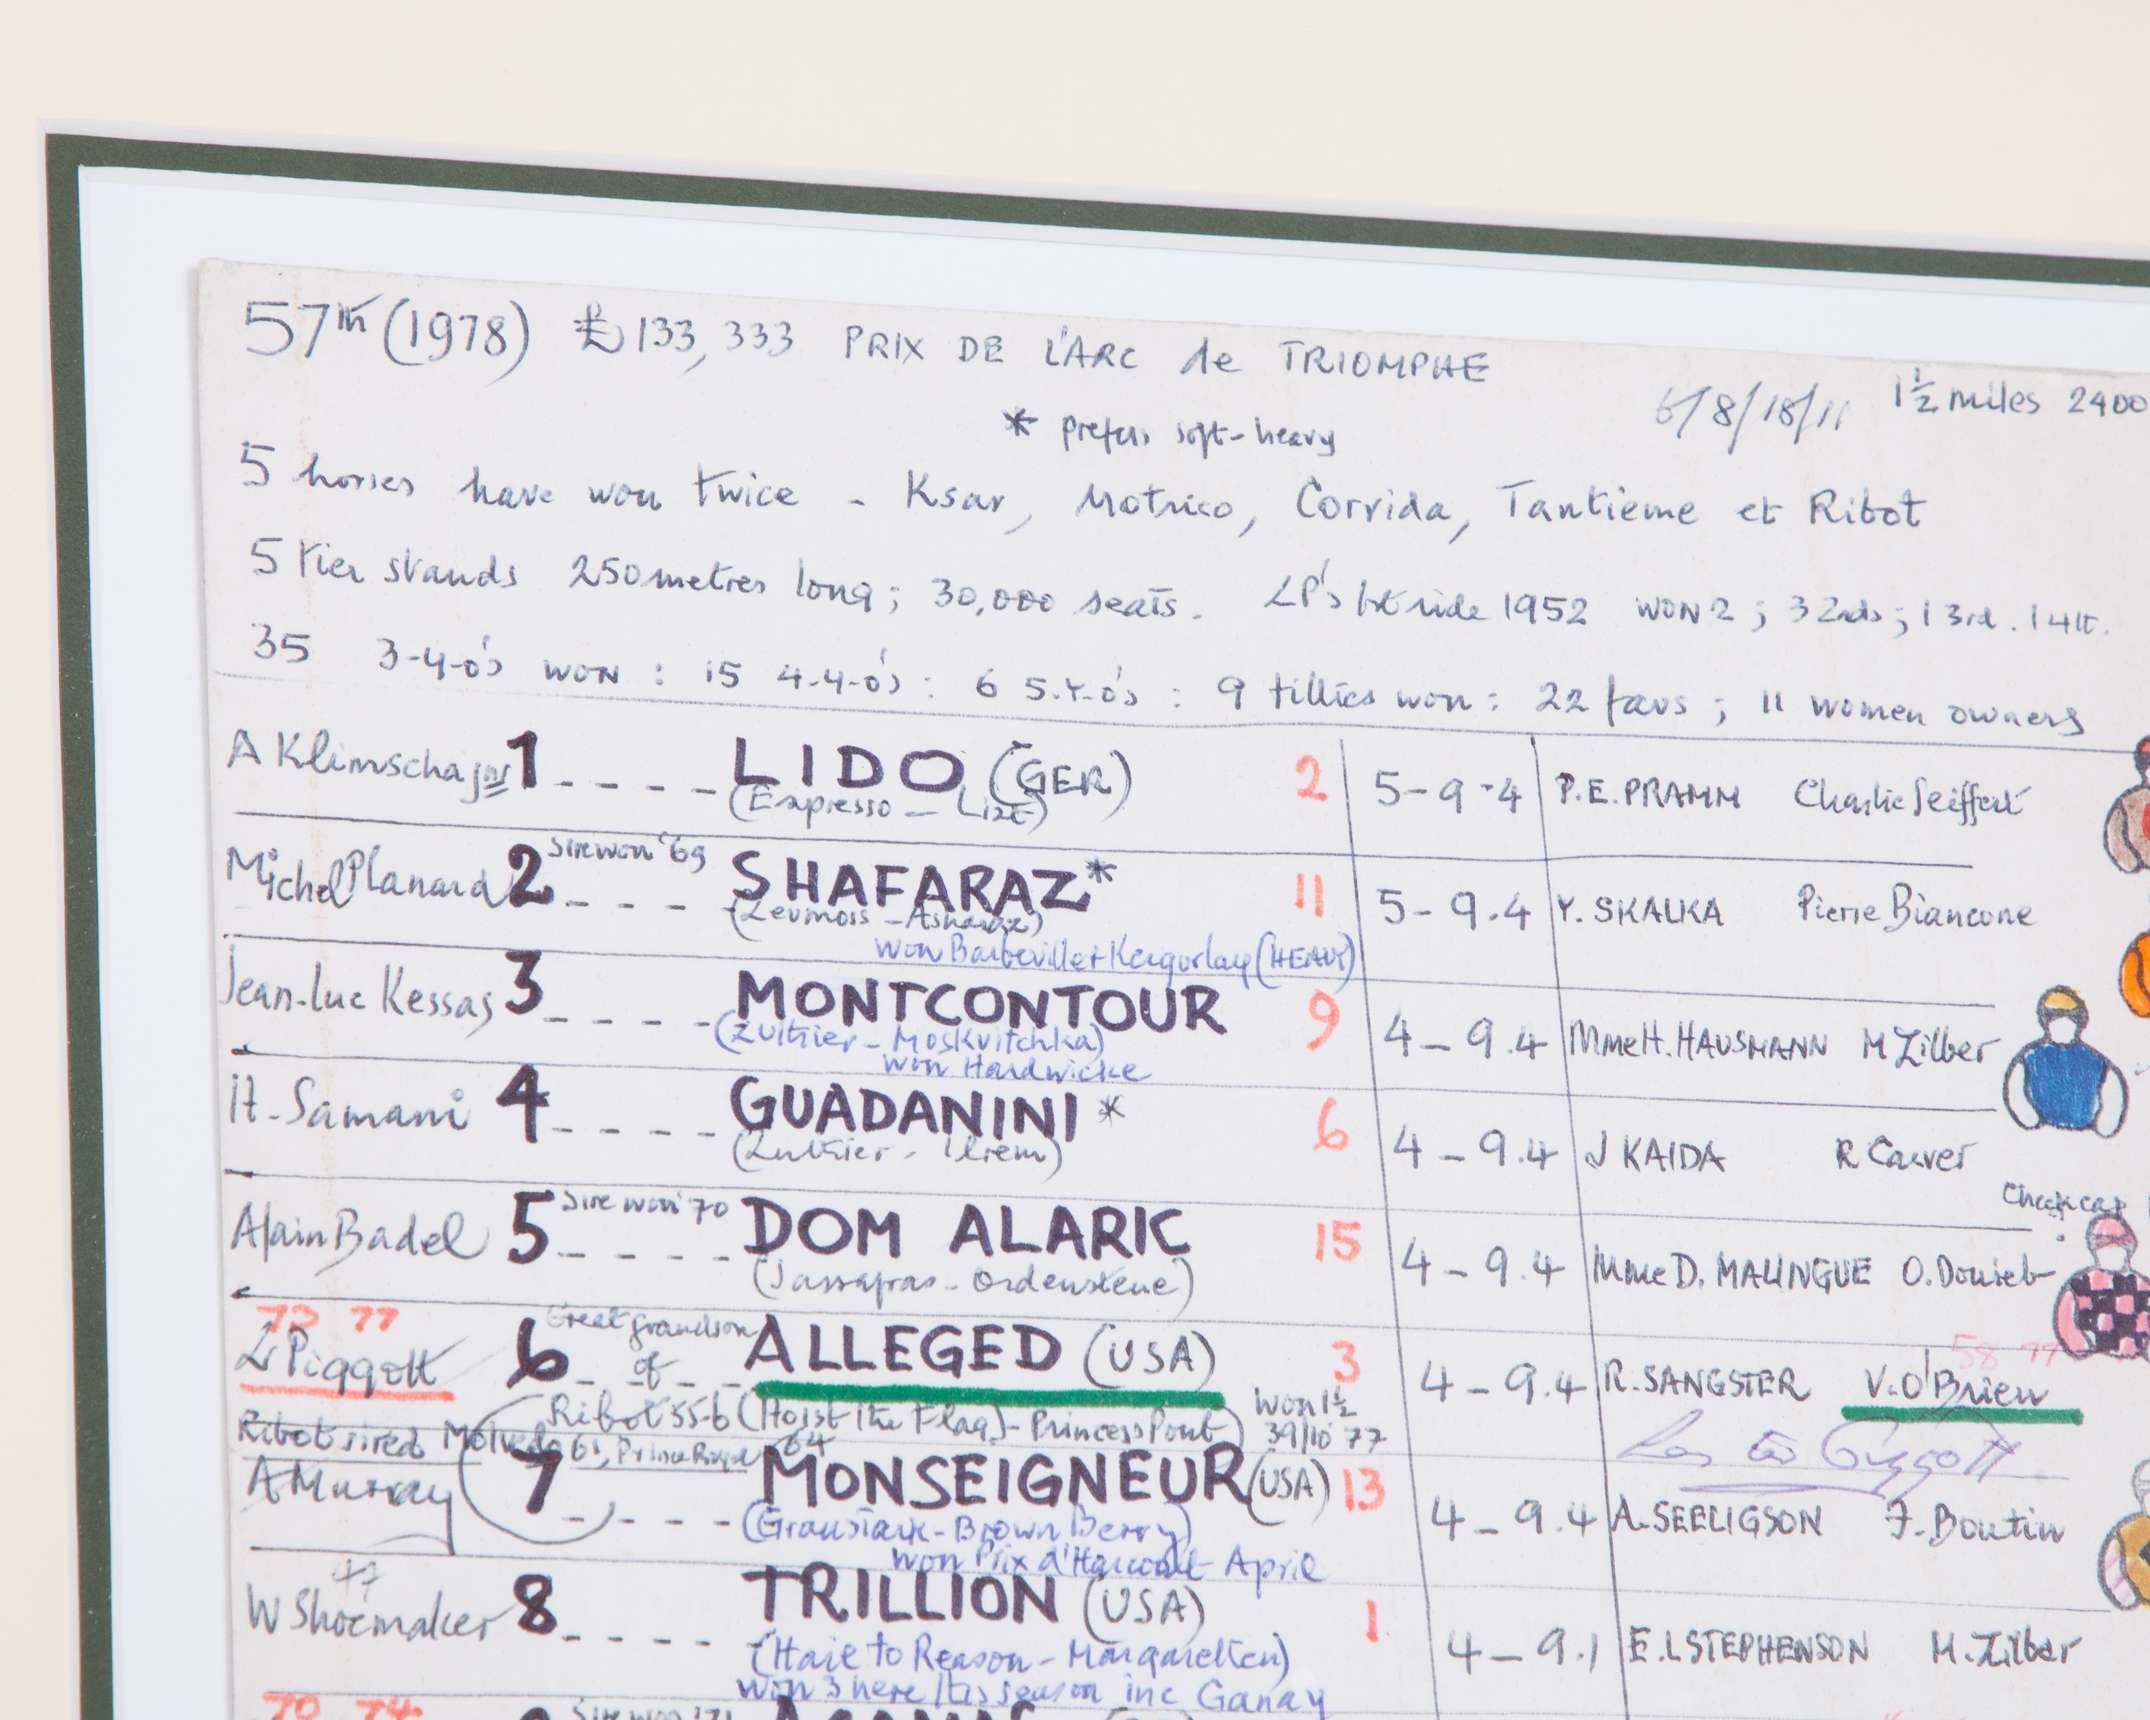 57th (1978) £133,333 PRIX DE L'ARC de TRIOMPHE
6/8/18/11 1½ miles 2400
* prefers soft-heavy
5 horses have won twice - Ksar, Motrico, Corrida, Tantieme et Ribot
5 tier stands 250 metres long; 30,000 seats. LP's 1st ride 1952 WON 2; 3 2nds; 1 3rd. 1 4th.
35 3-Y-O's WON : 15 4-Y-O's : 6 5-Y-O's : 9 fillies won : 22 favs ; 11 women owners
A Klimscha jnr 1 LIDO (GER) 2 5-9-4 P.E. PRAMM Charlie Seiffert
(Espresso - Lize)
Michel Planard 2 Sire won '69 SHAFARAZ* 11 5-9.4 Y. SKALKA Pierre Biancone
(Levmoss - Asharaz)
won Barbeville + Kergorlay (HEAVY)
Jean-Luc Kessas 3 MONTCONTOUR 9 4-9.4 Mme H. HAUSMANN M Zilber
(Luthier - Moskvitchka)
won Hardwicke
H. Samani 4 GUADANINI* 6 4-9.4 J KAIDA R Carver
(Luthier - Ilrem)
Check cap
Alain Badel 5 Sire won '70 DOM ALARIC 15 4-9.4 Mme D. MALINGUE O. Douieb
(Sassafras - Ordenstene)
73 77 58 77
L Piggott 6 Great grandson of ALLEGED (USA) 3 4-9.4 R. SANGSTER V. O'Brien
Ribot 55-6 (Hoist the Flag) - Princess Pout) Won 1½
39/10 '77
Lester Piggott
Ribot sired Molvedo 61, Prince Royal 64
A Murray 7 MONSEIGNEUR (USA) 13 4-9.4 A. SEELIGSON F. Boutin
(Graustark - Brown Berry)
won Prix d'Harcourt April
47
W Shoemaker 8 TRILLION (USA) 1 4-9.1 E. L STEPHENSON M. Zilber
(Haie to Reason - Margarethen)
won 3 here this season inc Ganay
70 74 Sire won '71